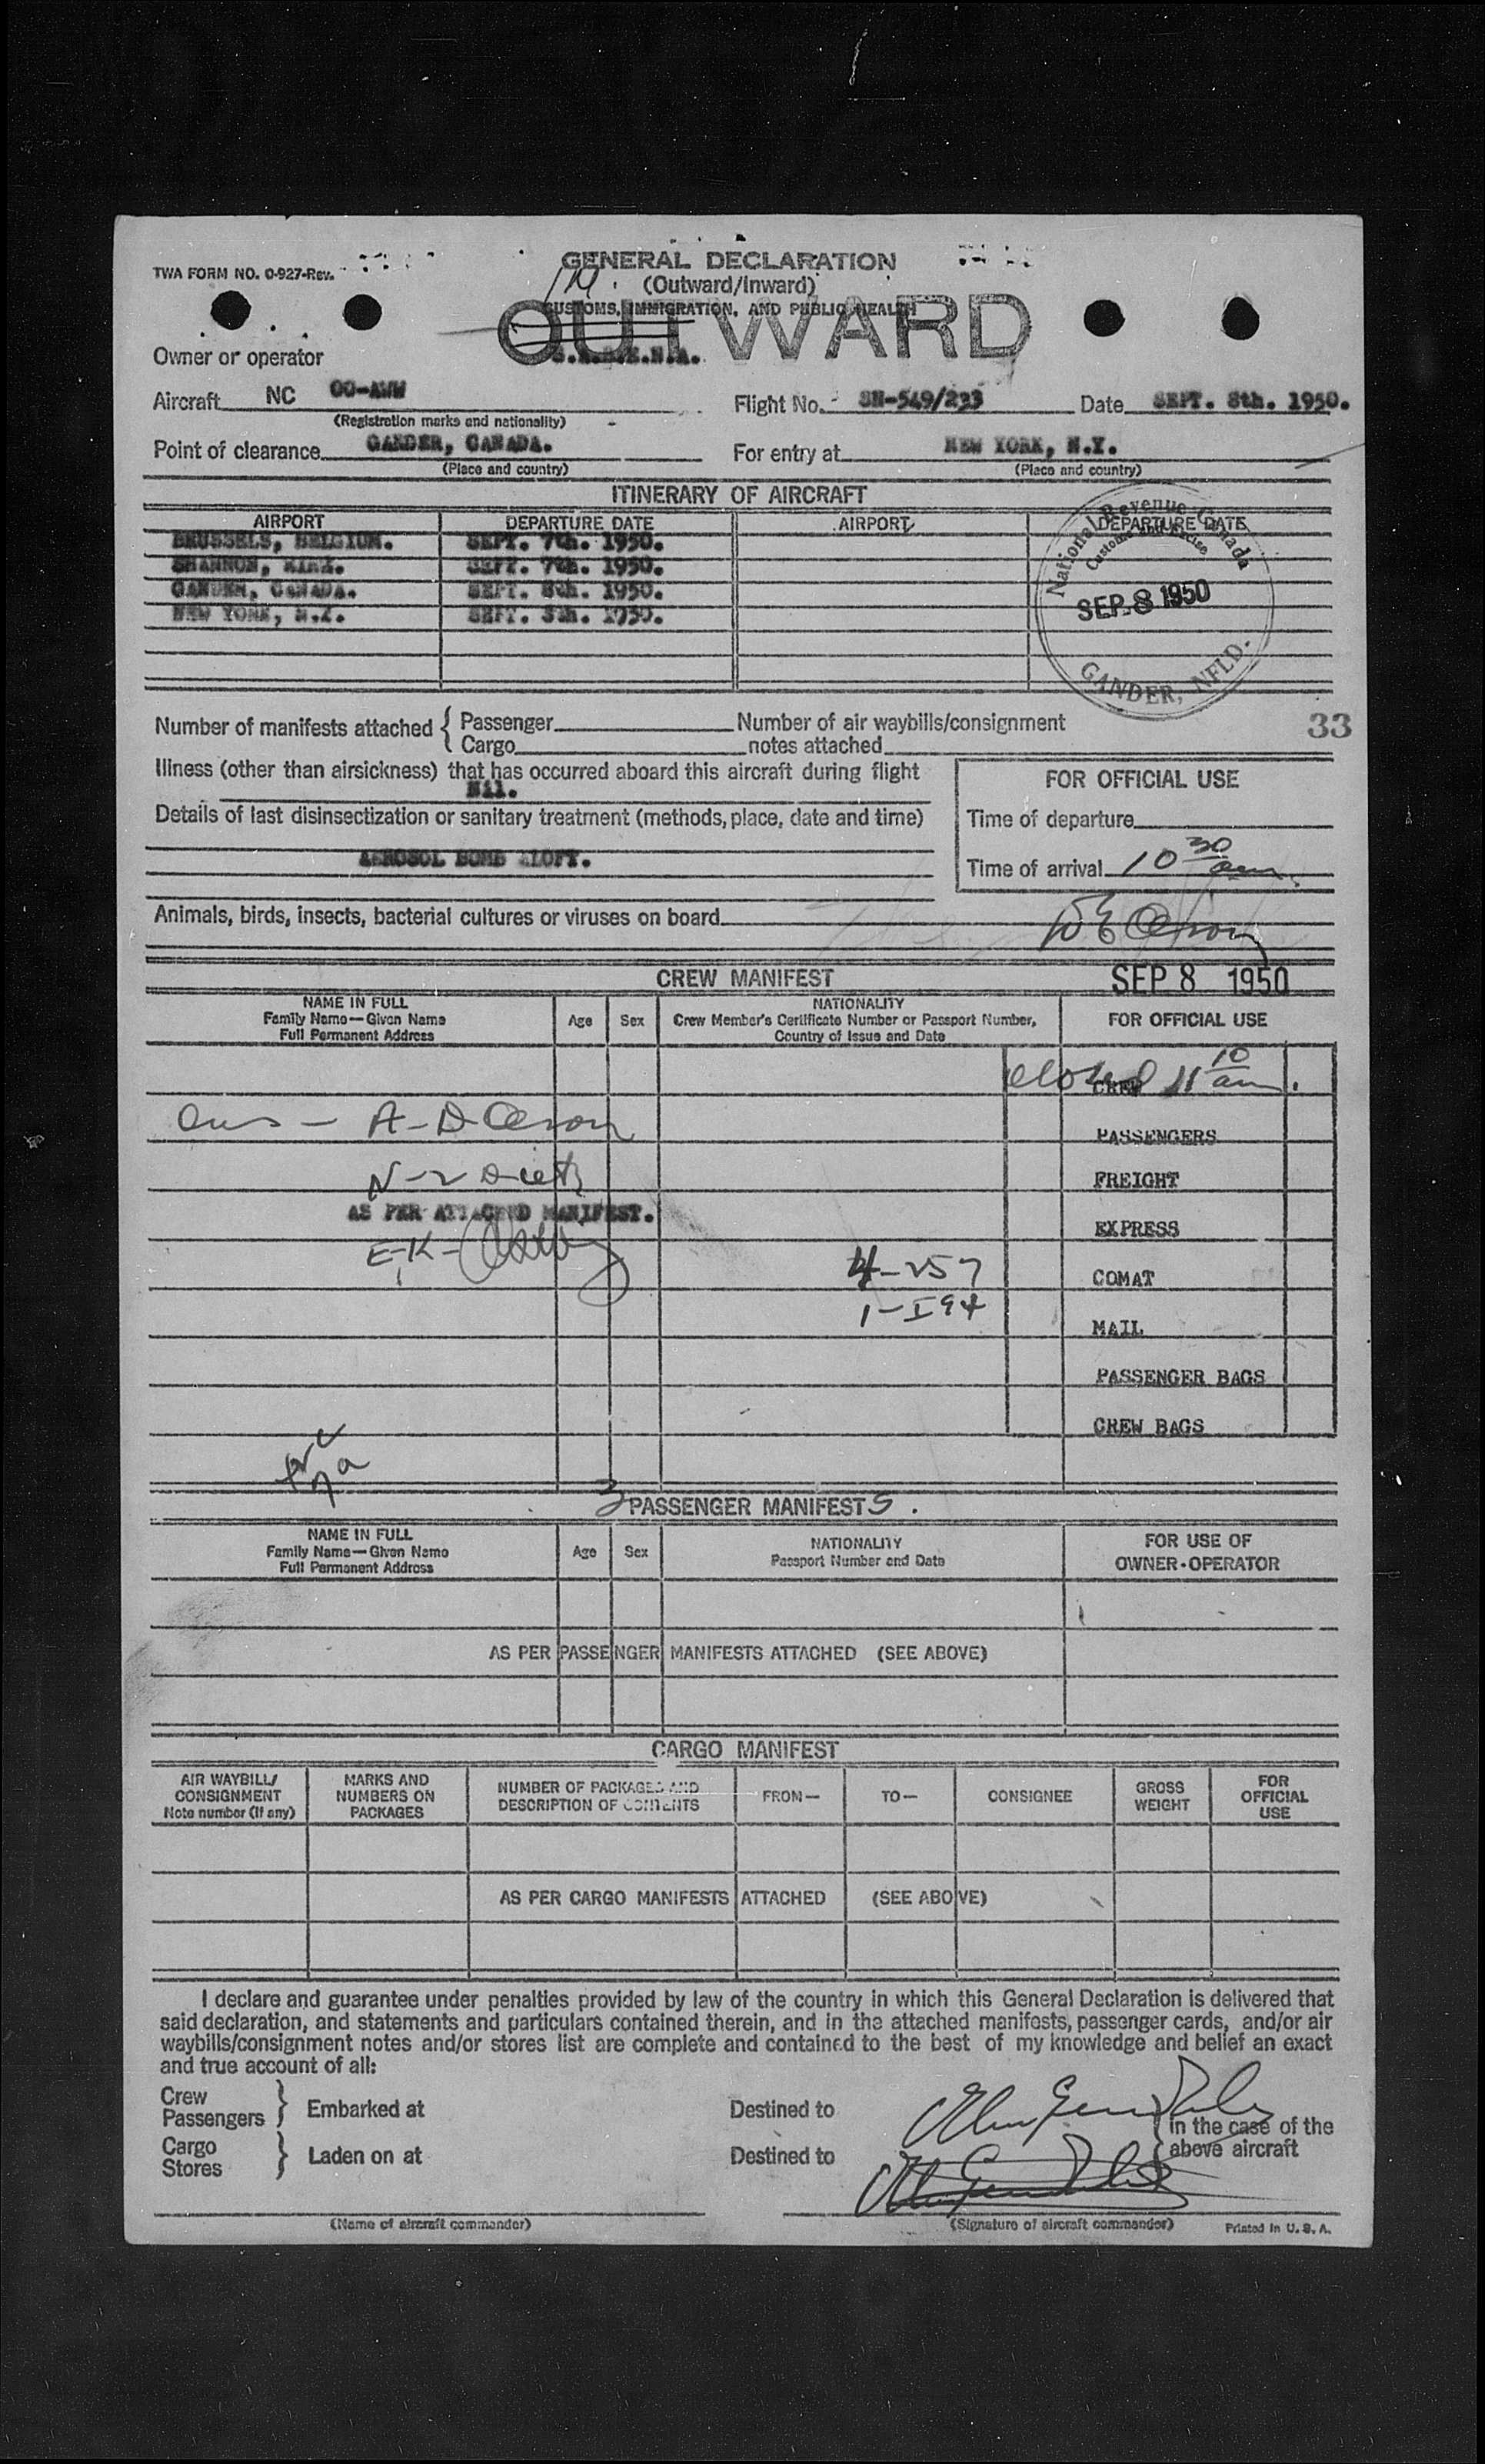 TWA FORM NO. O-927-Rev.
GENERAL DECLARATION
(Outward/Inward)
CUSTOMS, IMMIGRATION, AND PUBLIC HEALTH
OUTWARD
Owner or operator S.A.B.E.N.A.
Aircraft NC OO-AWW Flight No. SN-549/233 Date SEPT. 8th. 1950.
(Registration marks and nationality)
Point of clearance GANDER, CANADA. For entry at NEW YORK, N.Y.
(Place and country) (Place and country)
ITINERARY OF AIRCRAFT
AIRPORT DEPARTURE DATE AIRPORT DEPARTURE DATE
BRUSSELS, BELGIUM. SEPT. 7th. 1950.
SHANNON, EIRE. SEPT. 7th. 1950.
GANDER, CANADA. SEPT. 8th. 1950.
NEW YORK, N.Y. SEPT. 8th. 1950.
National Revenue Canada
Customs and Excise
SEP 8 1950
GANDER, NFLD.
33
Number of manifests attached { Passenger Number of air waybills/consignment
Cargo notes attached
Illness (other than airsickness) that has occurred aboard this aircraft during flight
Nil.
FOR OFFICIAL USE
Details of last disinsectization or sanitary treatment (methods, place, date and time)
Time of departure
AEROSOL BOMB ALOFT.
Time of arrival 10 30 am.
Animals, birds, insects, bacterial cultures or viruses on board
CREW MANIFEST SEP 8 1950
NAME IN FULL
Family Name—Given Name
Full Permanent Address
Age Sex
NATIONALITY
Crew Member's Certificate Number or Passport Number,
Country of Issue and Date
FOR OFFICIAL USE
closed 11 10 am.
CREW
PASSENGERS
FREIGHT
AS PER ATTACHED MANIFEST.
EXPRESS
4-257
COMAT
1-I94
MAIL
PASSENGER BAGS
CREW BAGS
3 PASSENGER MANIFESTS.
NAME IN FULL
Family Name—Given Name
Full Permanent Address
Age Sex
NATIONALITY
Passport Number and Date
FOR USE OF
OWNER-OPERATOR
AS PER PASSENGER MANIFESTS ATTACHED (SEE ABOVE)
CARGO MANIFEST
AIR WAYBILL/
CONSIGNMENT
Note number (If any)
MARKS AND
NUMBERS ON
PACKAGES
NUMBER OF PACKAGES AND
DESCRIPTION OF CONTENTS
FROM—
TO—
CONSIGNEE
GROSS
WEIGHT
FOR
OFFICIAL
USE
AS PER CARGO MANIFESTS ATTACHED (SEE ABOVE)
I declare and guarantee under penalties provided by law of the country in which this General Declaration is delivered that
said declaration, and statements and particulars contained therein, and in the attached manifests, passenger cards, and/or air
waybills/consignment notes and/or stores list are complete and contained to the best of my knowledge and belief an exact
and true account of all:
Crew
Passengers } Embarked at Destined to
in the case of the
above aircraft
Cargo
Stores } Laden on at Destined to
(Name of aircraft commander) (Signature of aircraft commander) Printed in U. S. A.